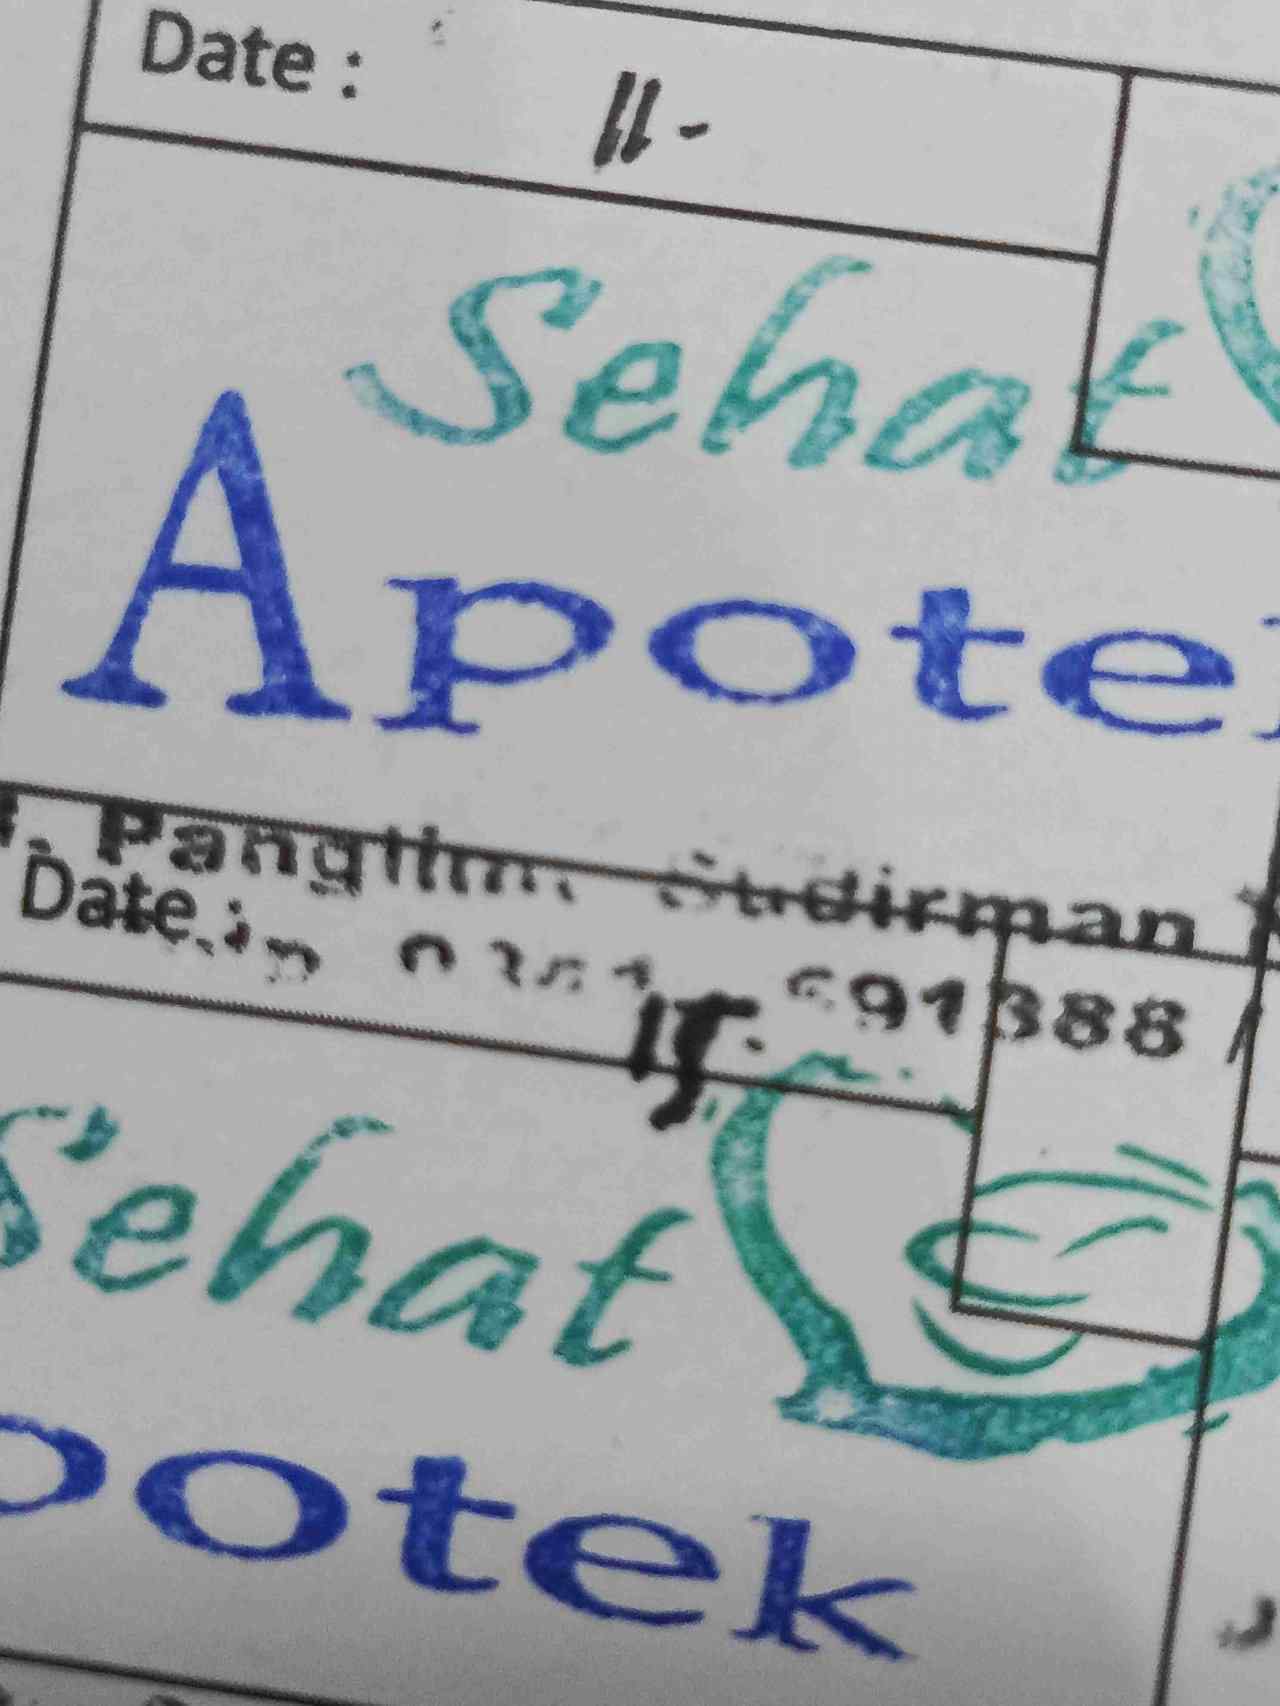 Date : 11-
Sehat
Apote
Panglim Sudirman
Date :
15.
91388
Sehat
potek